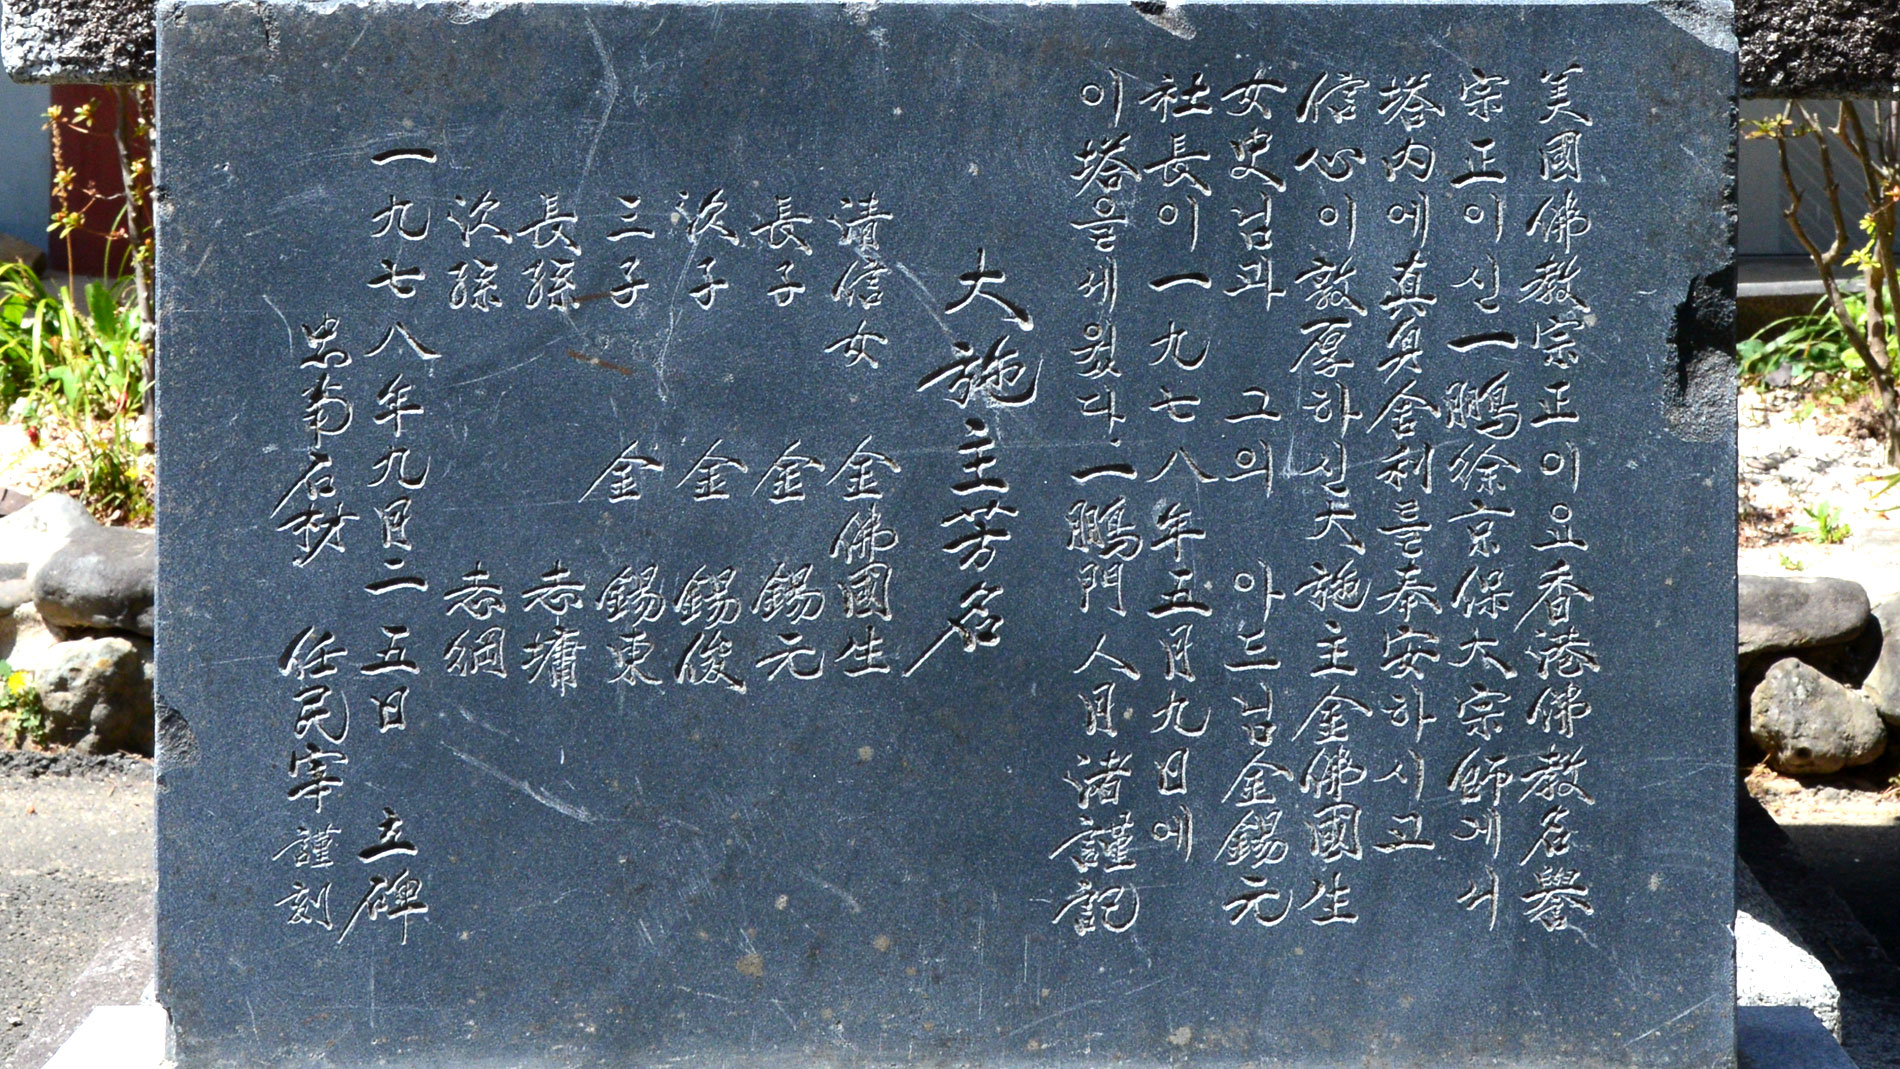 美國佛教宗正이요香港佛教名譽
宗正이신一鵬徐京保大宗師게서
塔內에眞身舍利를奉安하시고
信心이敦厚하신大施主金佛國生
女史님과 그의 아드님金錫元
社長이一九七八年五月九日에
이塔을세웠다.一鵬門人月渚謹記
大施主芳名
清信女 金佛國生
長子 金錫元
次子 金錫俊
三子 金錫東
長孫 志墉
次孫 志綱
一九七八年九月二五日 立碑
忠南石材 任民宰謹刻